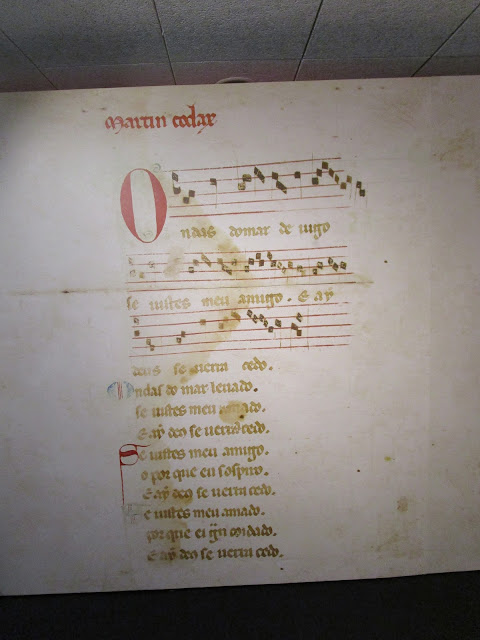 Martin codax
Ondas do mar de uigo
se uistes meu amigo. E ay
deus se uerra cedo.
Ondas do mar leuado.
se uistes meu amado.
E ay deo se uerra cedo.
Se uistes meu amigo.
o por que eu sospiro.
E ay deo se uerra cedo.
Se uistes meu amado.
por que ei gñ coidado.
E ay deo se uerra cedo.